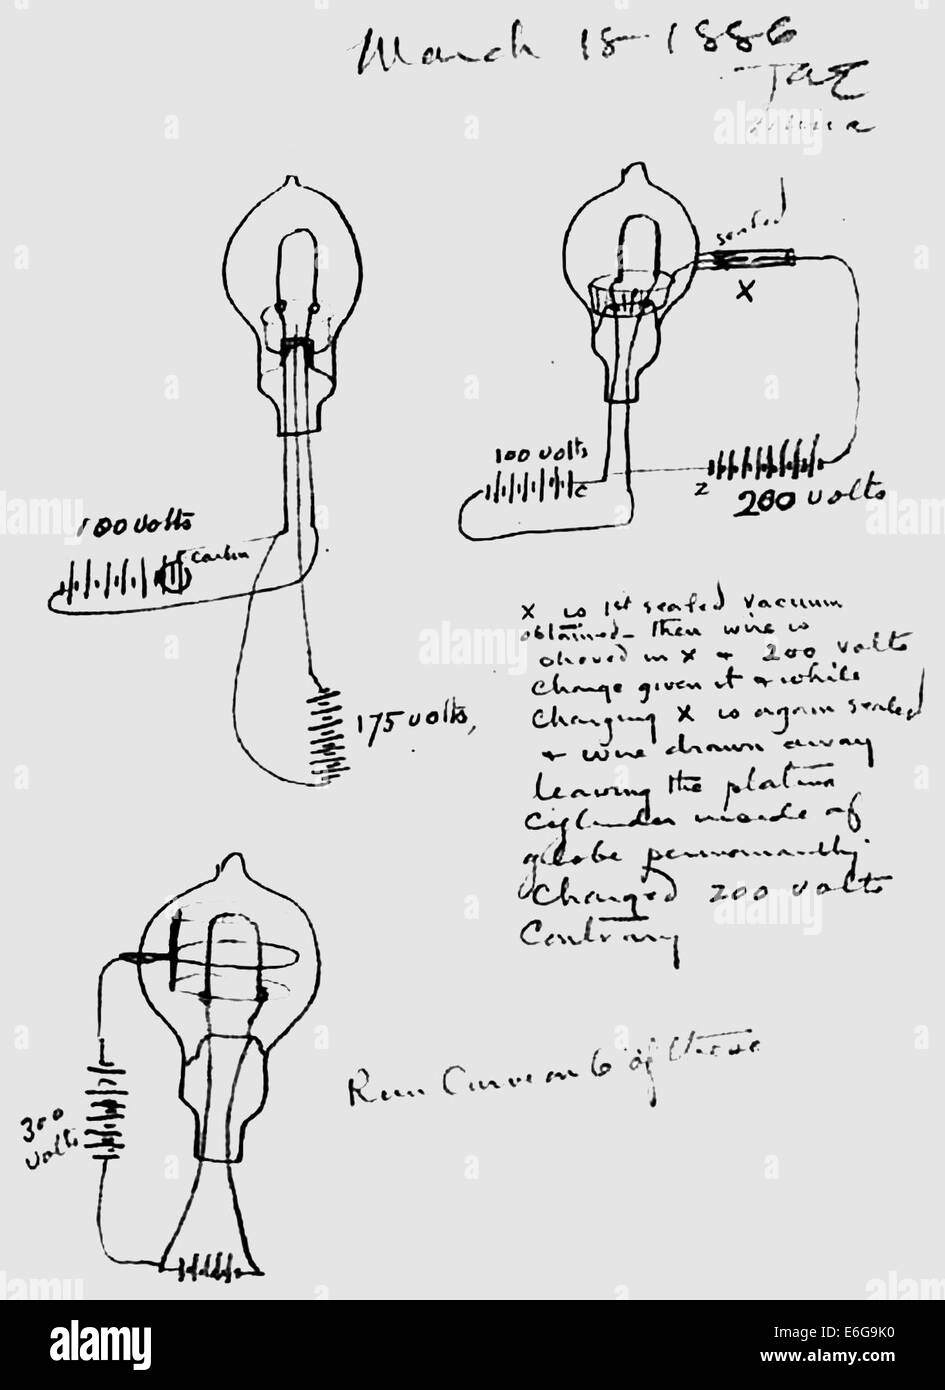 March 18-1886
TAE
sealed
X
100 volts
c
z
200 volts
100 volts
Carbon
175 volts,
X is 1st sealed vacuum
obtained - then wire is
shoved in X & 200 volts
charge given it & while
charging X is again sealed
& wire drawn away
leaving the platina
cylinder inside of
globe permanently
charged 200 volts
Contrary
300
volts
Run Curve on 6 of these
alamy
Image ID: E6G9K0
www.alamy.com